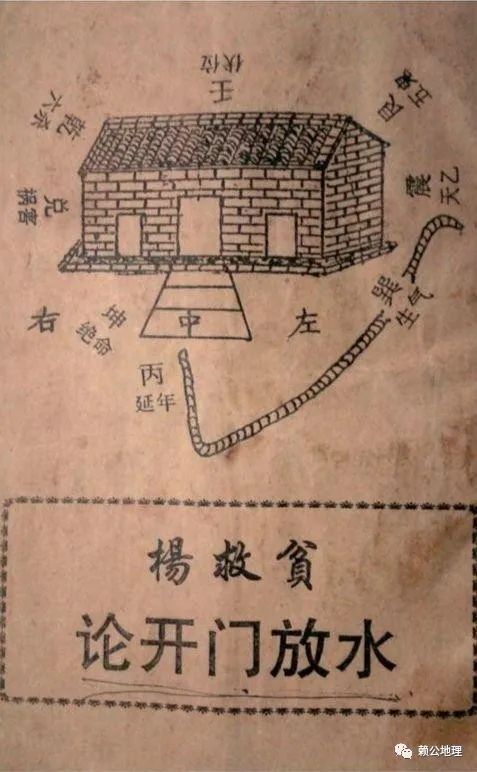 壬
伏位
乾
六杀
艮
五鬼
兑
祸害
震
天乙
巽
生气
右
坤
绝命
中
左
丙
延年
楊救贫
论开门放水
赖公地理